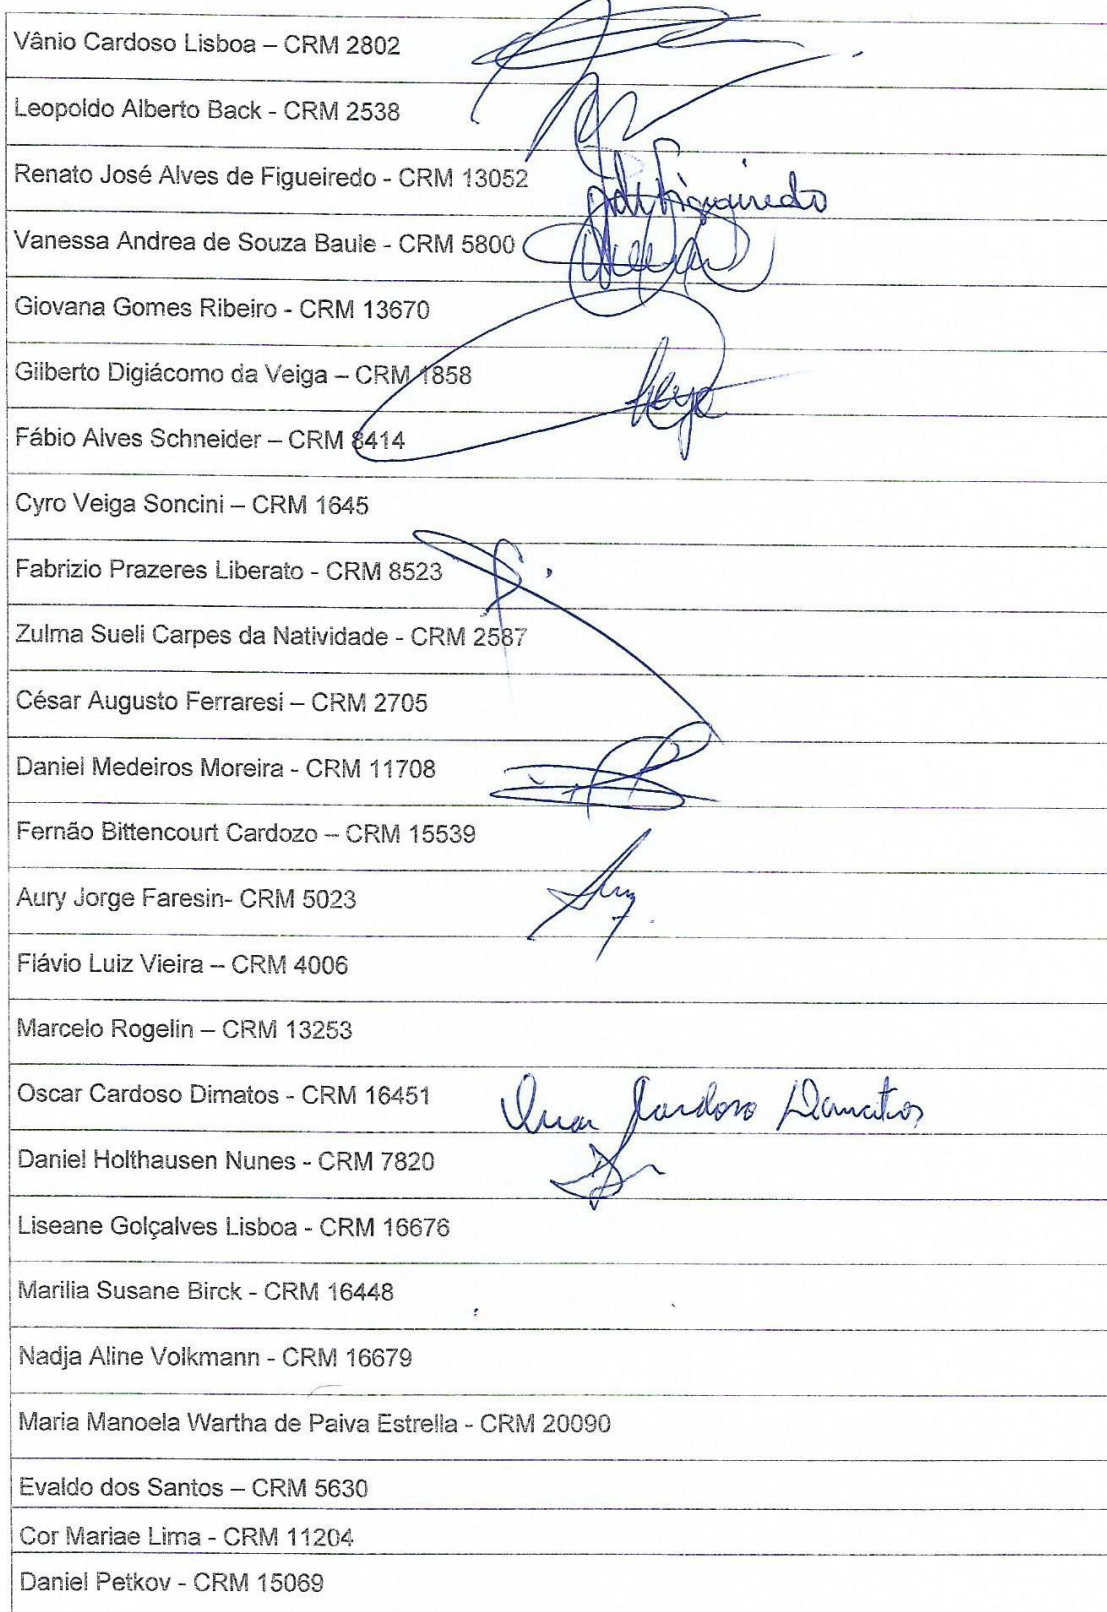 Vânio Cardoso Lisboa – CRM 2802
Leopoldo Alberto Back - CRM 2538
Renato José Alves de Figueiredo - CRM 13052
Figueiredo
Vanessa Andrea de Souza Baule - CRM 5800
Giovana Gomes Ribeiro - CRM 13670
Gilberto Digiácomo da Veiga – CRM 1858
Fábio Alves Schneider – CRM 8414
Cyro Veiga Soncini – CRM 1645
Fabrizio Prazeres Liberato - CRM 8523
Zulma Sueli Carpes da Natividade - CRM 2587
César Augusto Ferraresi – CRM 2705
Daniel Medeiros Moreira - CRM 11708
Fernão Bittencourt Cardozo – CRM 15539
Aury Jorge Faresin- CRM 5023
Flávio Luiz Vieira – CRM 4006
Marcelo Rogelin – CRM 13253
Oscar Cardoso Dimatos - CRM 16451 Oscar Cardoso Dimatos
Daniel Holthausen Nunes - CRM 7820
Liseane Golçalves Lisboa - CRM 16676
Marilia Susane Birck - CRM 16448
Nadja Aline Volkmann - CRM 16679
Maria Manoela Wartha de Paiva Estrella - CRM 20090
Evaldo dos Santos – CRM 5630
Cor Mariae Lima - CRM 11204
Daniel Petkov - CRM 15069